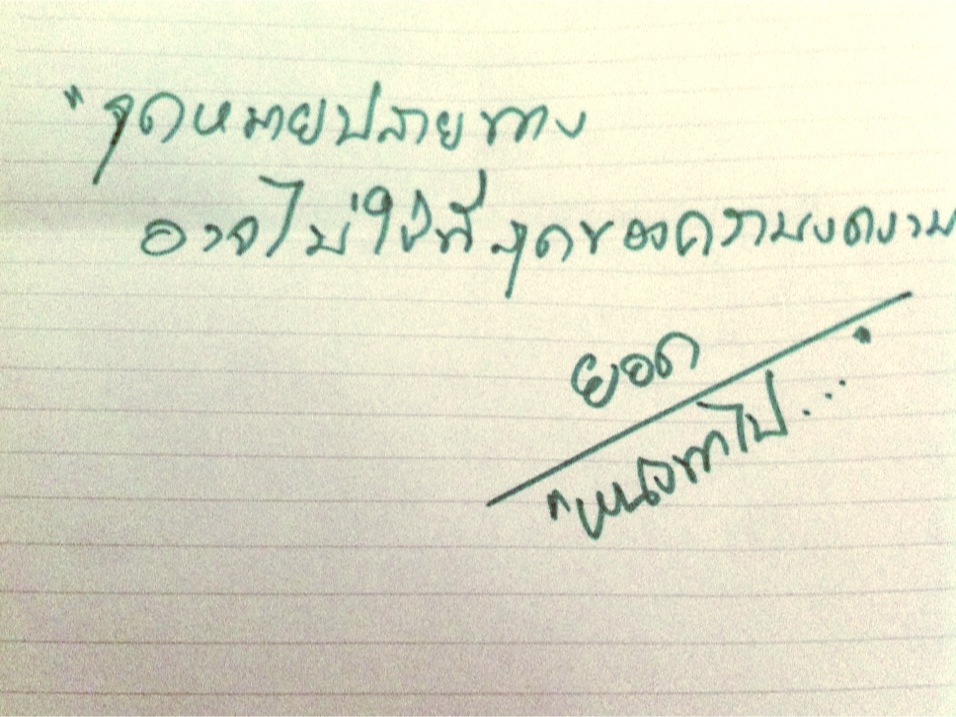 "จุดหมายปลายทาง
อาจไม่ใช่ที่สุดของความงดงาม
ยอด
"หนังพาไป..."